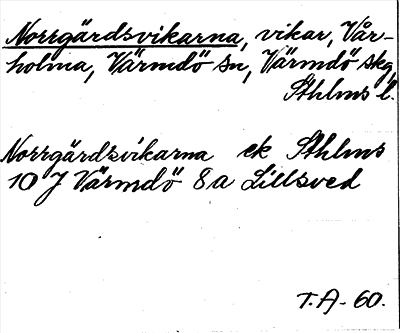 Norrgårdsvikarna, vikar, Vår-
holma, Värmdö sn, Värmdö skg,
Sthlms l.
Norrgårdsvikarna ek Sthlms
10 J Värmdö 8a Lillsved
T.A-60.